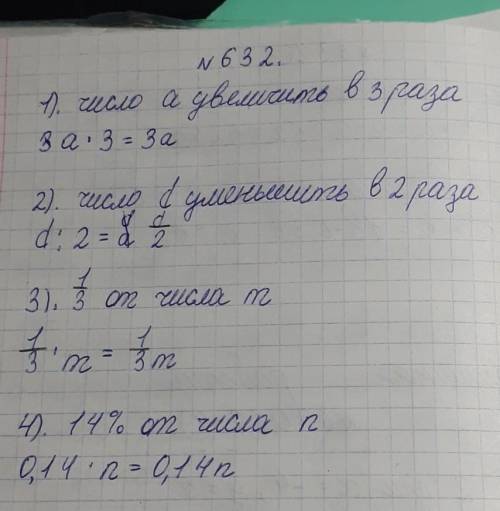 №632.
1). число a увеличить в 3 раза
a · 3 = 3a
2). число d уменьшить в 2 раза
d : 2 = d/2
3). 1/3 от числа m
1/3 · m = 1/3 m
4). 14% от числа n
0,14 · n = 0,14n